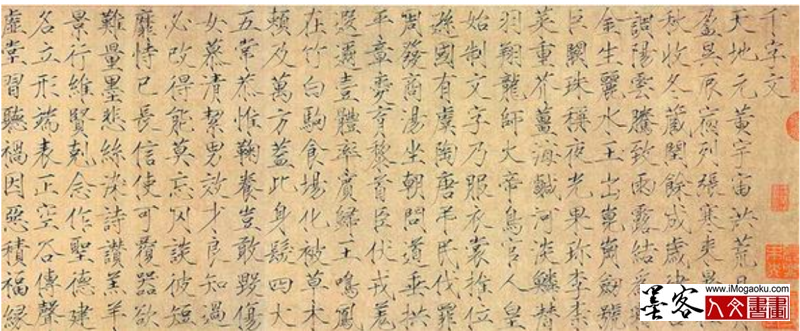 千字文
天地元黃宇宙洪荒日
盈昃辰宿列張寒來暑
秋收冬藏閏餘成歲律
調陽雲騰致雨露結為
金生麗水玉出崑崗劔號
巨闕珠稱夜光果珍李柰
菜重芥薑海鹹河淡鱗潛
羽翔龍師火帝鳥官人皇
始制文字乃服衣裳推位
遜國有虞陶唐弔民伐罪
周發商湯坐朝問道垂拱
平章愛育黎首臣伏戎羌
遐邇壹體率賓歸王鳴鳳
在竹白駒食場化被草木
賴及萬方蓋此身髮四大
五常恭惟鞠養豈敢毀傷
女慕清絜男效才良知過
必改得能莫忘罔談彼短
靡恃己長信使可覆器欲
難量墨悲絲染詩讚羔羊
景行維賢剋念作聖德建
名立形端表正空谷傳聲
虛堂習聽禍因惡積福緣
墨客
www.iMogaoku.com
人文書畫